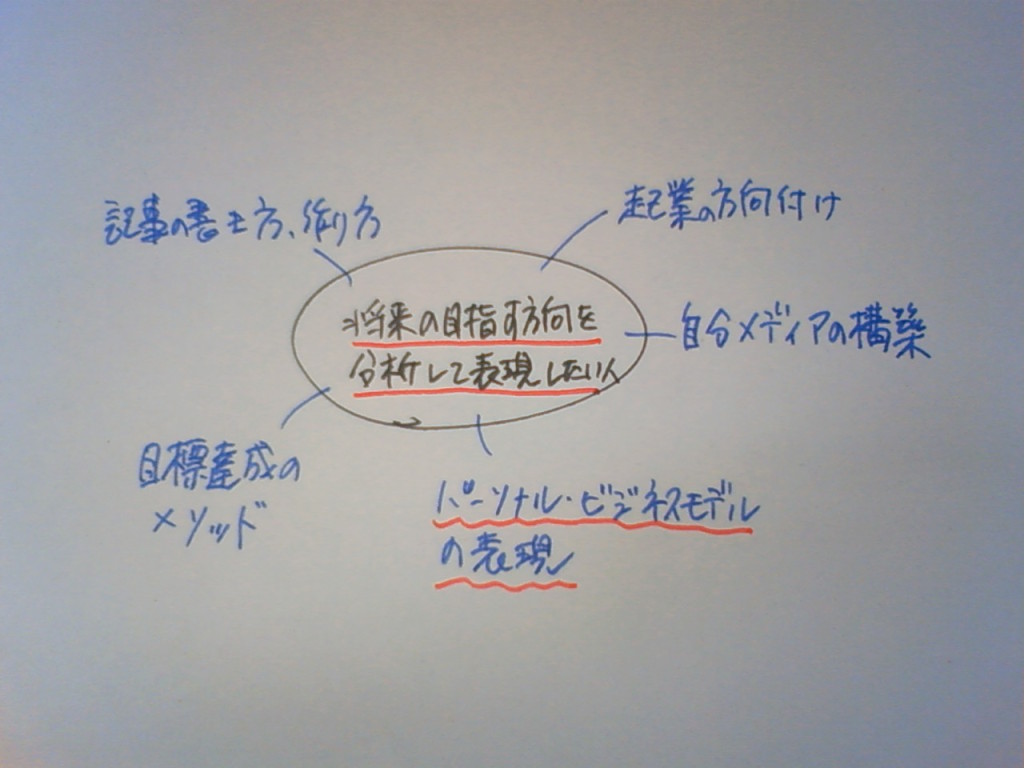 起業の方向付け
記事の書き方、作り方
将来の目指す方向を
分析して表現したい人
自分メディアの構築
目標達成の
メソッド
パーソナル・ビジネスモデル
の表現